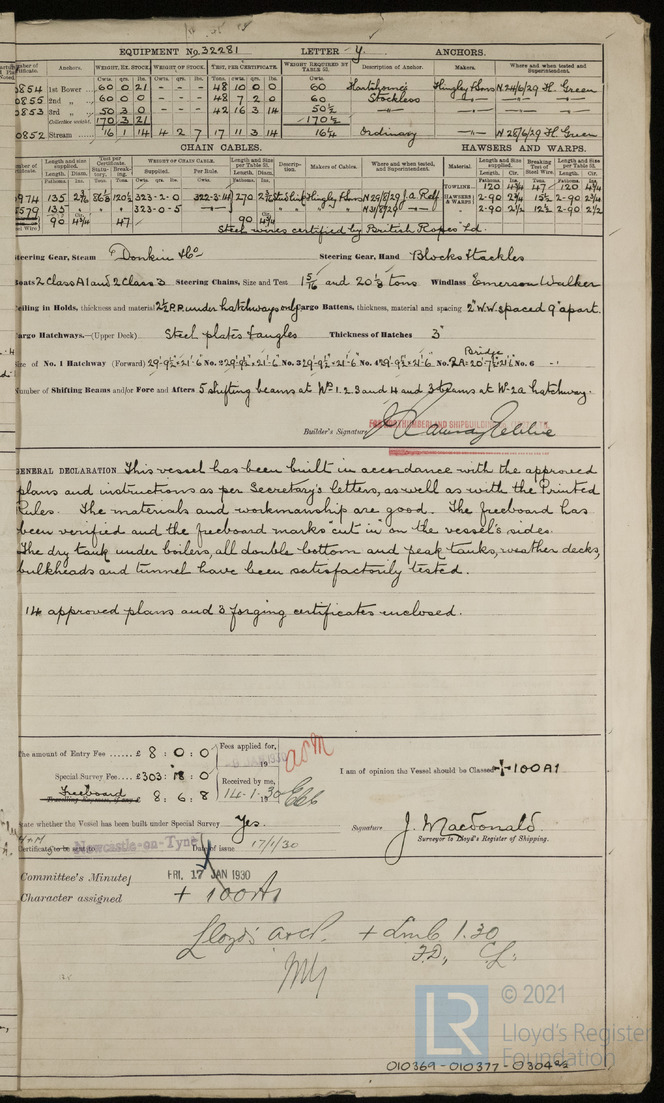 EQUIPMENT No. 32281 LETTER y ANCHORS.
Anchors. WEIGHT, EX. STOCK. WEIGHT OF STOCK. TEST, PER CERTIFICATE. WEIGHT REQUIRED BY TABLE 53. Description of Anchor. Makers. Where and when tested and Superintendent.
Cwts. qrs. lbs. Cwts. qrs. lbs. Tons. cwts. qrs. lbs. Cwts.
0854 1st Bower 60 0 21 - - - 48 10 0 0 60 Hingley & Sons N 24/6/29 H. Green
0855 2nd „ 60 0 0 - - - 48 7 2 0 60 Stockless
0853 3rd „ 50 3 0 - - - 42 16 3 14 50½
Collective weight. 170 3 21 170½
0852 Stream 16 1 14 4 2 7 17 11 3 14 16¼ Ordinary N 25/6/29 H. Green
CHAIN CABLES. HAWSERS AND WARPS.
Length and size supplied. Test per Certificate. WEIGHT OF CHAIN CABLE. Length and Size per Table 53. Description. Makers of Cables. Where and when tested, and Superintendent. Material. Length and Size supplied. Breaking Test of Steel Wire. Length and Size per Table 53.
Fathoms. Diam. Statutory. Breaking. Supplied. Per Rule. Length. Diam.
0974 135 120 323-2-0 322-3-14 270 Hingley & Sons N 29/8/29 J. a. Relf TOWLINE 120 4¾ 47 120 4¾
0579 135 323-0-5 N 31/8/29 HAWSERS & WARPS 2-90 2¾ 15½ 2-90 2¾
90 4¾ 47 90 4¾ 2-90 2½ 12½ 2-90 2½
Steel wires certified by British Ropes Ld.
Steering Gear, Steam Donkin & Co Steering Gear, Hand Blocks & tackles
Boats 2 Class A1 and 2 Class 3 Steering Chains, Size and Test 1 5/16 and 20 1/8 tons Windlass Emerson Walker
Ceiling in Holds, thickness and material 2½ P.P. under hatchways only Cargo Battens, thickness, material and spacing 2" W.W. spaced 9" apart.
Cargo Hatchways.—(Upper Deck) Steel plates & angles Thickness of Hatches 3"
Size of No. 1 Hatchway (Forward) 29'-9½" × 21'-6" No. 2 29'-9½" × 21'-6" No. 3 29'-9½" × 21'-6" No. 4 29'-9½" × 21'-6" Bridge No. 2A = 20'-7½" × 21'6" No. 6 -
Number of Shifting Beams and/or Fore and Afters 5 shifting beams at Nos 1. 2. 3 and 4 and 3 beams at No 2a hatchway.
Builder's Signature
GENERAL DECLARATION This vessel has been built in accordance with the approved
plans and instructions as per Secretary's letters, as well as with the Printed
Rules. The materials and workmanship are good. The freeboard has
been verified and the freeboard marks "cut in" on the vessel's sides.
The dry tank under boilers, all double bottom and peak tanks, weather decks,
bulkheads and tunnel have been satisfactorily tested.
14 approved plans and 3 forging certificates enclosed.
The amount of Entry Fee £ 8 : 0 : 0 Fees applied for, 19
Special Survey Fee £303 : 18 : 0 Received by me, 14-1-30
Freeboard 8 : 6 : 8
I am of opinion the Vessel should be Classed + 100A1
State whether the Vessel has been built under Special Survey Yes.
Signature J. Macdonald.
Surveyor to Lloyd's Register of Shipping.
Certificate to be sent to Newcastle-on-Tyne Date of issue 17/1/30
Committee's Minute FRI. 17 JAN 1930
Character assigned + 100A1
Lloyd's arch. + Lmb 1.30
LR © 2021
Lloyd's Register
Foundation
010369-010377-0304 2/2